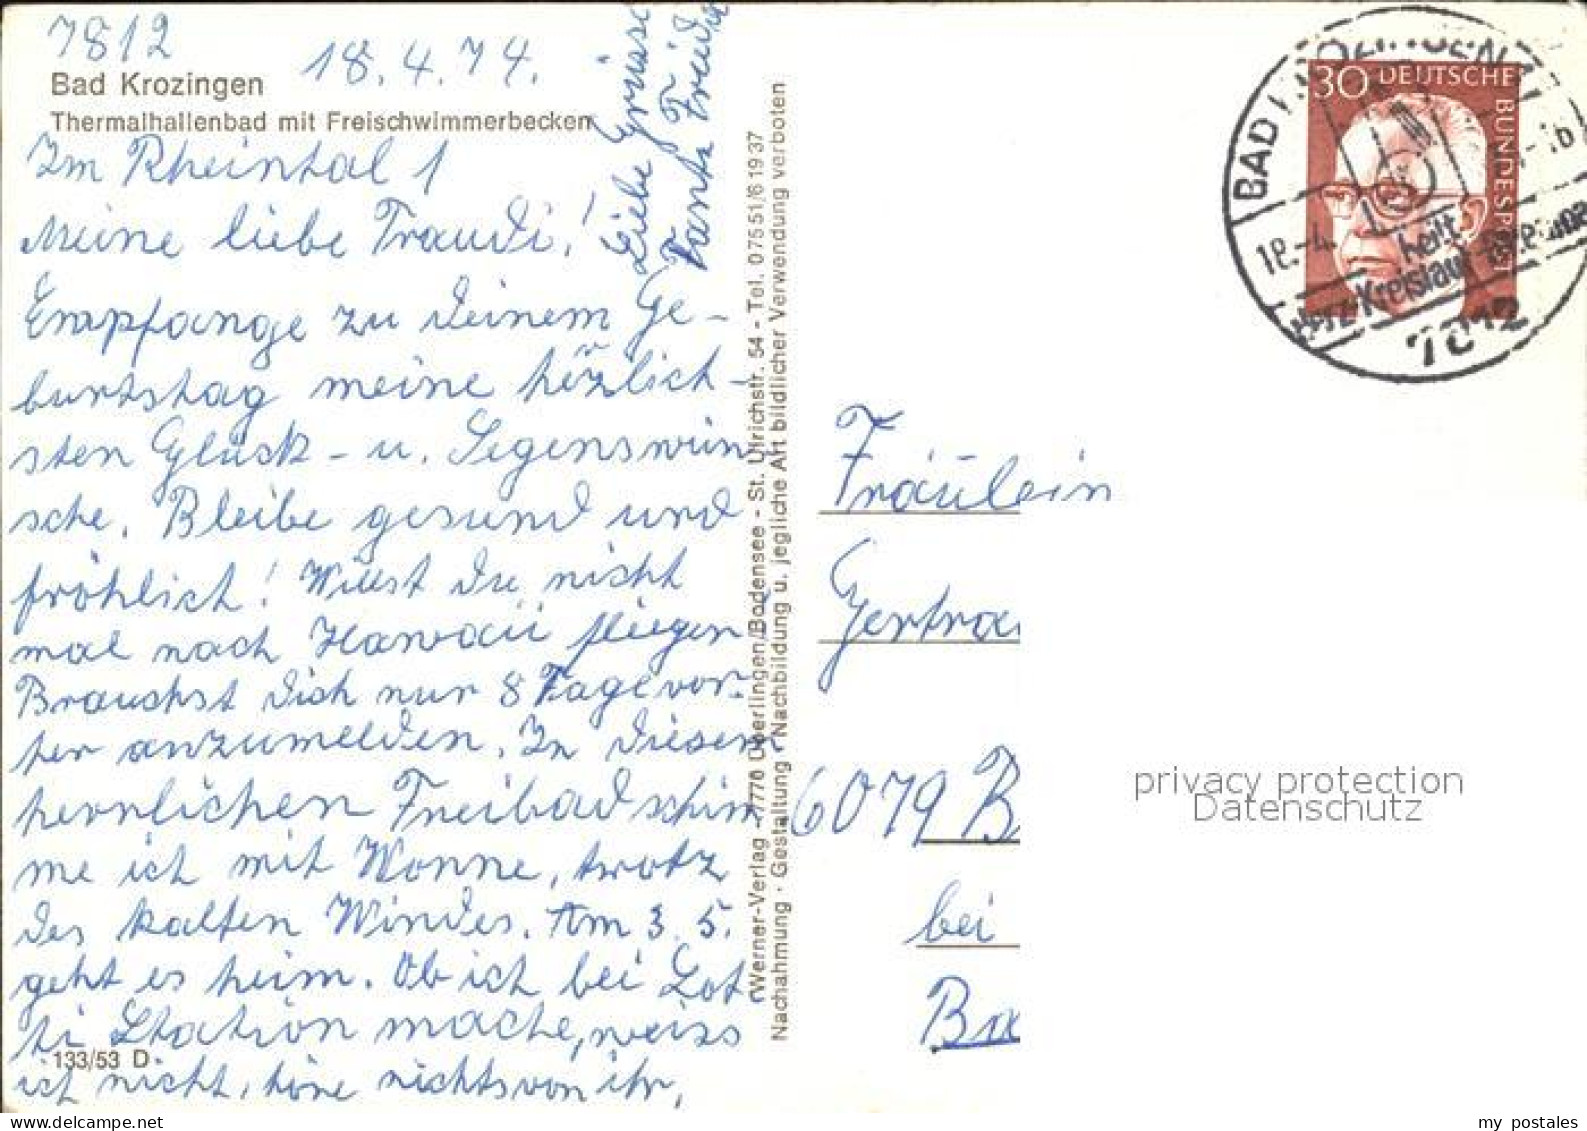 7812
18.4.74.
Bad Krozingen
Thermalhallenbad mit Freischwimmerbecken
Im Rheintal 1
Meine liebe Traudi!
Empfange zu Deinem Ge-
burtstag meine herzlich-
sten Glück- u. Segenswün-
sche. Bleibe gesund und
fröhlich! Willst Du nicht
mal nach Hawaii fliegen
Brauchst Dich nur 8 Tage vor-
her anzumelden. In diesem
herrlichen Freibad schim
me ich mit Wonne, trotz
des kalten Windes. Am 3.5.
geht es heim. Ob ich bei Lot
ti Station mache, weiss
ich nicht, höre nichts von ihr,
133/53 D
Liebe Grüsse
Tante Frieda
Werner-Verlag - 7770 Überlingen/Bodensee - St. Ulrichstr. 54 - Tel. 07551/61937
Nachahmung · Gestaltung · Nachbildung u. jegliche Art bildlicher Verwendung verboten
30 DEUTSCHE
BUNDESPOST
BAD KROZINGEN 1
18.-4.
-16
heilt
Herz-Kreislauf
7812
Fräulein
Gertrau
6079 B
bei
Ba
privacy protection
Datenschutz
my postales